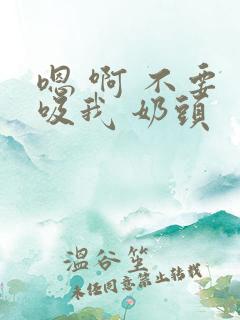 嗯 啊 不要
吸我 奶頭
溫谷笙
未经同意禁止转载